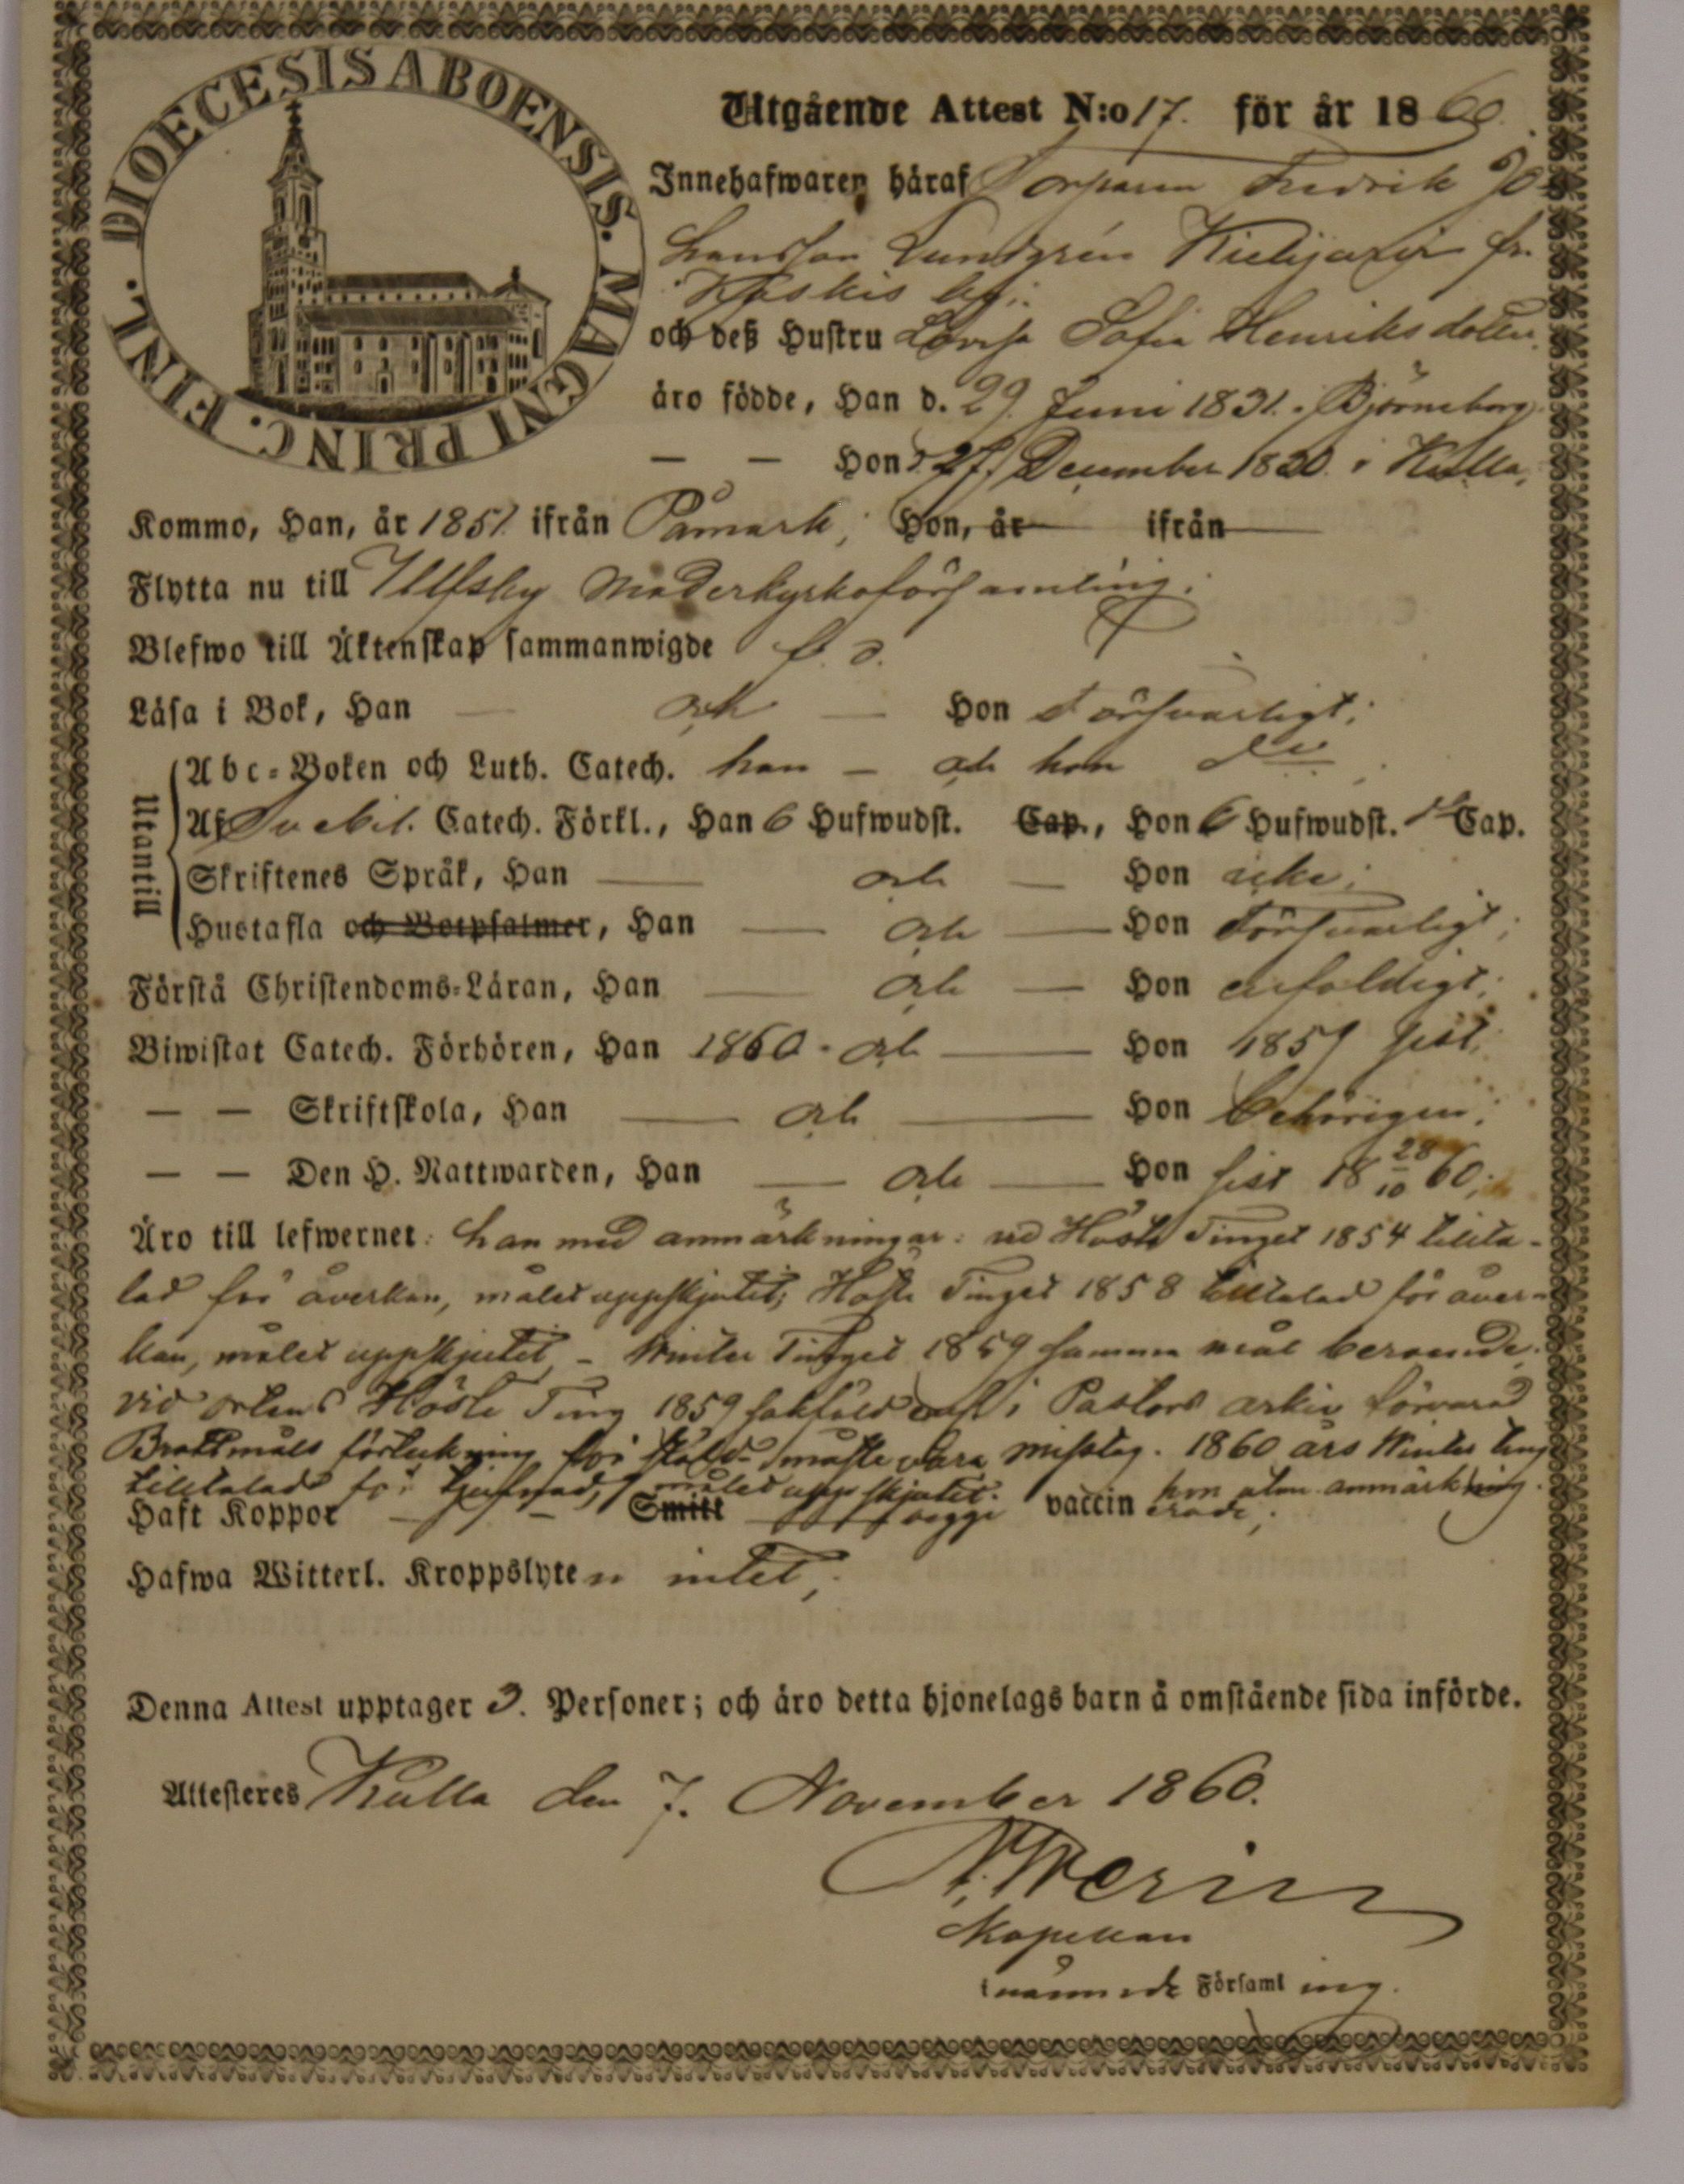 DIOECESIS ABOENSIS. MAGNI PRINC. FINL.
Utgående Attest N:o 17. för år 1860.
Innehafwaren häraf Torparen Fredrik Jo-
hansson Lundgrén fr.
Koskis by;
och deß Hustru Lovisa Sofia Henriksdotter,
äro födde, Han d. 29. Juni 1831. i Björneborg.
— — Hon d. 27. December 1830. i Kulla,
Kommo, Han, år 1851. ifrån Påmark; Hon, år — ifrån —
Flytta nu till Ulfsby Moderkyrkoförsamling;
Blefwo till Äktenskap sammanwigde
Läsa i Bok, Han — och — Hon Försvarligt;
Utantill
Abc-Boken och Luth. Catech. han — och hon do
Af Svebil. Catech. Förkl., Han 6 Hufwudst. Cap., Hon 6 Hufwudst. Cap.
Skriftenes Språk, Han — och — Hon icke;
Hustafla och Botpsalmer, Han — och — Hon Försvarligt;
Förstå Christendoms-Läran, Han — och — Hon enfaldigt;
Biwistat Catech. Förhören, Han 1860. och — Hon 1859 sist;
— — Skriftskola, Han — och — Hon behörigen;
— — Den H. Nattwarden, Han — och — Hon sist 18 28/10 60;
Äro till lefwernet: han med anmärkningar: vid Höste Tinget 1854 tillta-
lad för åverkan, målet uppskjutit; Höste Tinget 1858 tilltalad för åver-
kan, målet uppskjutit, — Winter Tinget 1859 samma mål beroende.
vid ortens Höste Ting 1859 sakfäld i Pastors arkiv förvarad
Brottmåls förteckning för måste vara misstag. 1860 års Winter ting
tilltalad för tjufnad, målet uppskjutit. hon utan anmärkning.
Haft Koppor — — Smitt — begge vaccinerade;
Hafwa Witterl. Kroppslyten intet;
Denna Attest upptager 3. Personer; och äro detta hjonelags barn å omstående sida införde.
Attesteres Kulla den 7. November 1860.
Kapellan
i nämnde Församling.